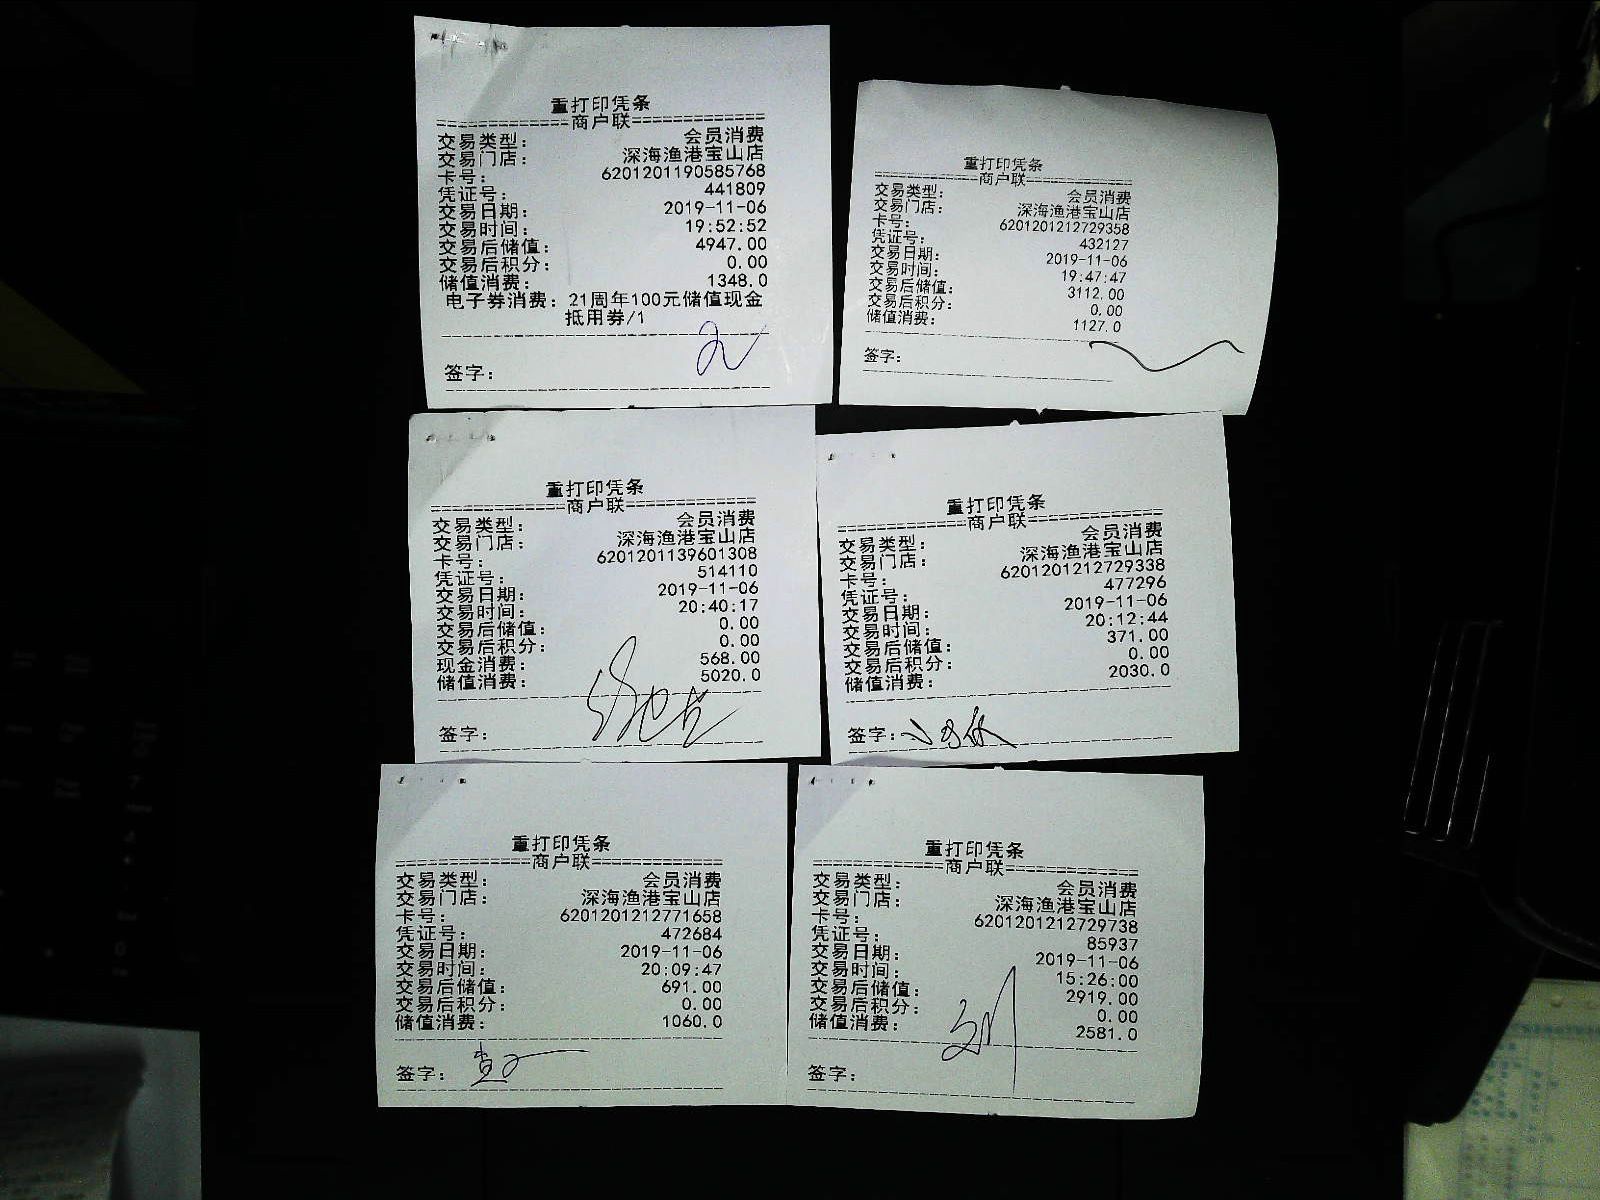 重打印凭条
==============商户联==============
交易类型： 会员消费
交易门店： 深海渔港宝山店
卡号： 6201201190585768
凭证号： 441809
交易日期： 2019-11-06
交易时间： 19:52:52
交易后储值： 4947.00
交易后积分： 0.00
储值消费： 1348.0
电子券消费：21周年100元储值现金
抵用券/1
签字：
重打印凭条
==============商户联==============
交易类型： 会员消费
交易门店： 深海渔港宝山店
卡号： 6201201212729358
凭证号： 432127
交易日期： 2019-11-06
交易时间： 19:47:47
交易后储值： 3112.00
交易后积分： 0.00
储值消费： 1127.0
签字：
重打印凭条
==============商户联==============
交易类型： 会员消费
交易门店： 深海渔港宝山店
卡号： 6201201139601308
凭证号： 514110
交易日期： 2019-11-06
交易时间： 20:40:17
交易后储值： 0.00
交易后积分： 0.00
现金消费： 568.00
储值消费： 5020.0
签字：
重打印凭条
==============商户联==============
交易类型： 会员消费
交易门店： 深海渔港宝山店
卡号： 6201201212729338
凭证号： 477296
交易日期： 2019-11-06
交易时间： 20:12:44
交易后储值： 371.00
交易后积分： 0.00
储值消费： 2030.0
签字：
重打印凭条
==============商户联==============
交易类型： 会员消费
交易门店： 深海渔港宝山店
卡号： 6201201212771658
凭证号： 472684
交易日期： 2019-11-06
交易时间： 20:09:47
交易后储值： 691.00
交易后积分： 0.00
储值消费： 1060.0
签字：
重打印凭条
==============商户联==============
交易类型： 会员消费
交易门店： 深海渔港宝山店
卡号： 6201201212729738
凭证号： 85937
交易日期： 2019-11-06
交易时间： 15:26:00
交易后储值： 2919.00
交易后积分： 0.00
储值消费： 2581.0
签字：